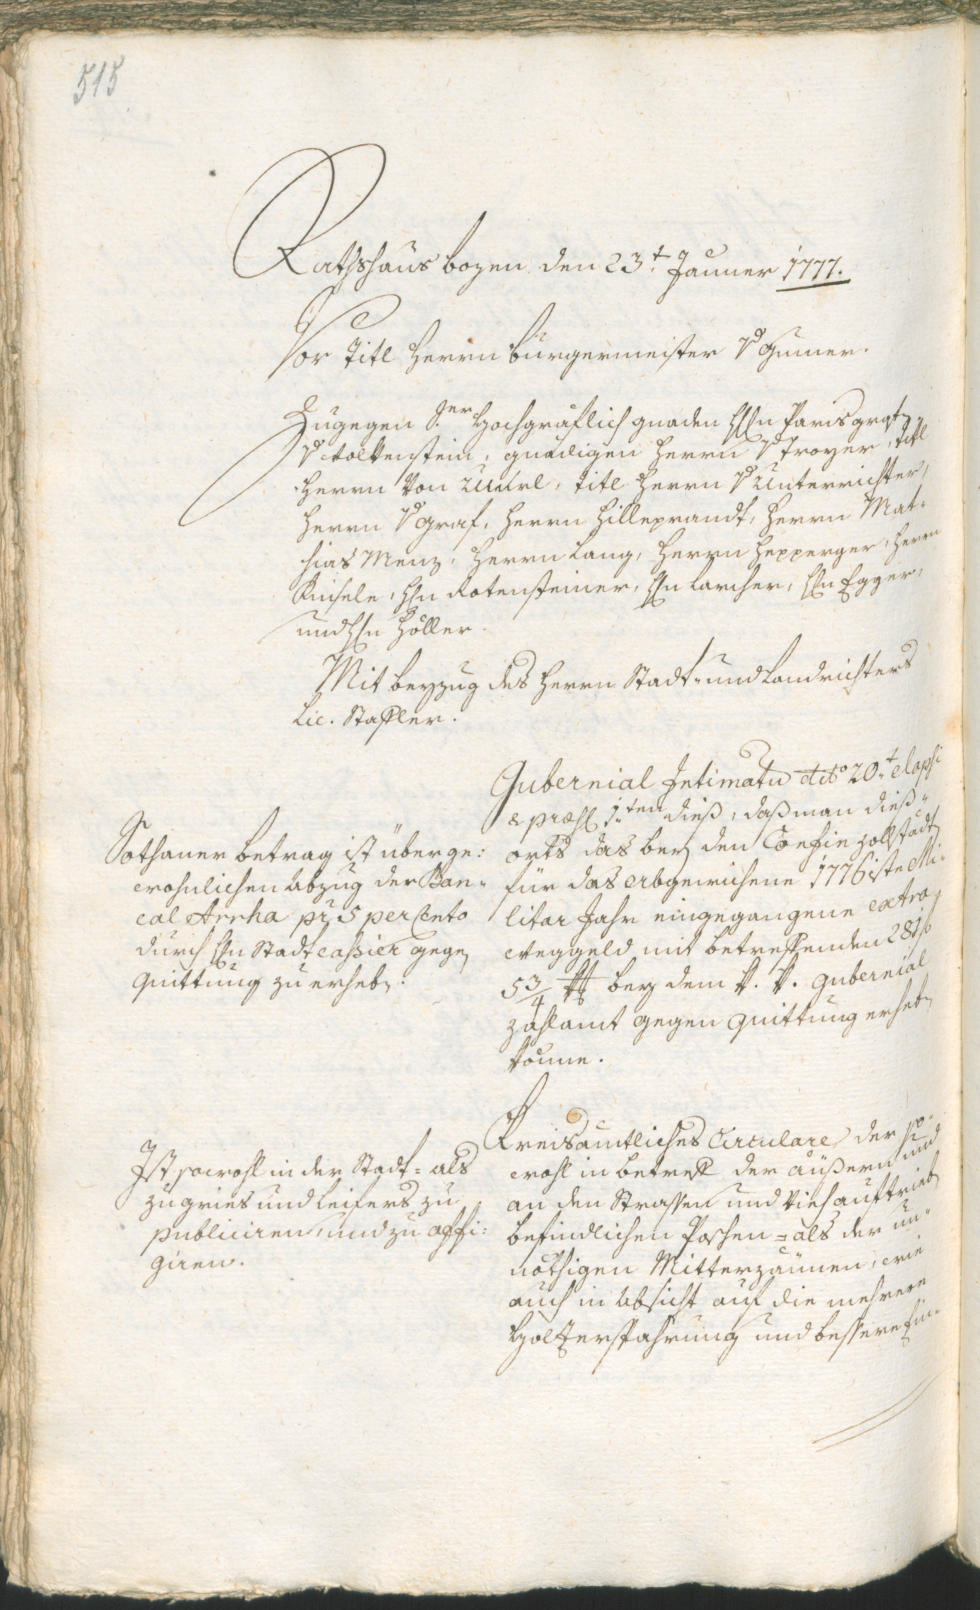 515
Rathshaus bozen den 23.t Jänner 1777.
Vor Titl Herrn burgermeister v Gumer.
Zugegen S.er Hochgräflich gnaden HEn Paris graf
v wolkenstein, gnädigen Herrn v Troyer, Titl
Herrn von Mörl, Titl Herrn v Unterrichter,
Herrn v Graf, Herrn Hilleprandt, Herrn Mat-
hias Menz, Herrn Lang, Herrn Hepperger, Herrn
Kinsele, HEn Rotensteiner, HEn Larcher, HEn Egger,
und HEn Höller.
Mit beyzug des Herrn Stadt- und Landrichters
Lic. Stapler.
Gubernial Intimatum dtõ 20.t elapsi
& præss 1.ten dieß, daß man dieß-
orts das bey den Confin zollstädt
für das abgewichene 1776iste Mi-
litar Jahr eingegangene extra
weggeld mit betreffenden 281 f
53/4 x bey dem K. K. Gubernial
zahlamt gegen quittung erheben
könne.
Sothaner betrag ist über ge-
wohnlichen Abzug der Ban-
cal Arrha pr 5 per Cento
durch HEn Stadtcassier gegen
quittung zu erheben.
Kreisamtliches Circulare der so-
wohl in betreff der äußern und
an den Strassen und Viehauftrieb
befindlichen - als der un-
nöthigen Mitterzäunen, wie
auch in Absicht auf die mehrere
Holzersparung und bessere Ein-
Ist sowohl in der Stadt- als
zu gries und Leifers zu
publiciren, und zu affi-
giren.